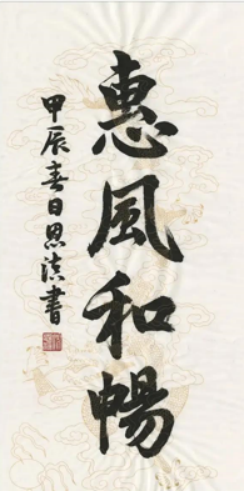 惠風和暢
甲辰春日恩滇書